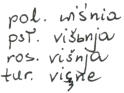 pol. wiśnia
psł. višьnja
ros. višnja
tur. vişne